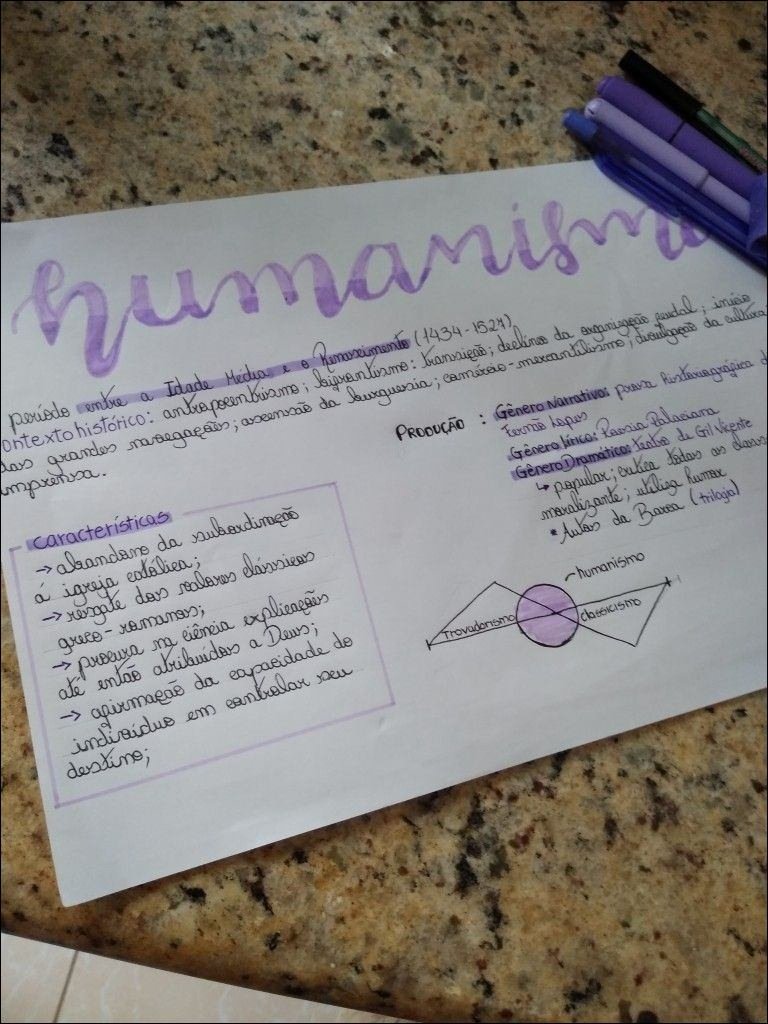 humanismo
período entre a Idade Média e o Renascimento (1434-1527)
contexto histórico: antropocentrismo; bifrontismo: transição; declínio da organização feudal; início
das grandes navegações; ascensão da burguesia; comércio-mercantilismo; divulgação da cultura
imprensa.
PRODUÇÃO : Gênero Narrativo: prosa historiográfica d
Fernão Lopes
Gênero Lírico: Poesia Palaciana
Gênero Dramático: Teatro de Gil Vicente
↳ popular; critica todas as class
moralizante; utiliza humor
* Autos da Barca (trilogia)
características
→ abandono da subordinação
á igreja católica;
→ resgate dos valores clássicos
greco-romanos;
→ procura na ciência explicações
até então atribuídas a Deus;
→ afirmação da capacidade do
indivíduo em controlar seu
destino;
humanismo
Trovadorismo
classicismo